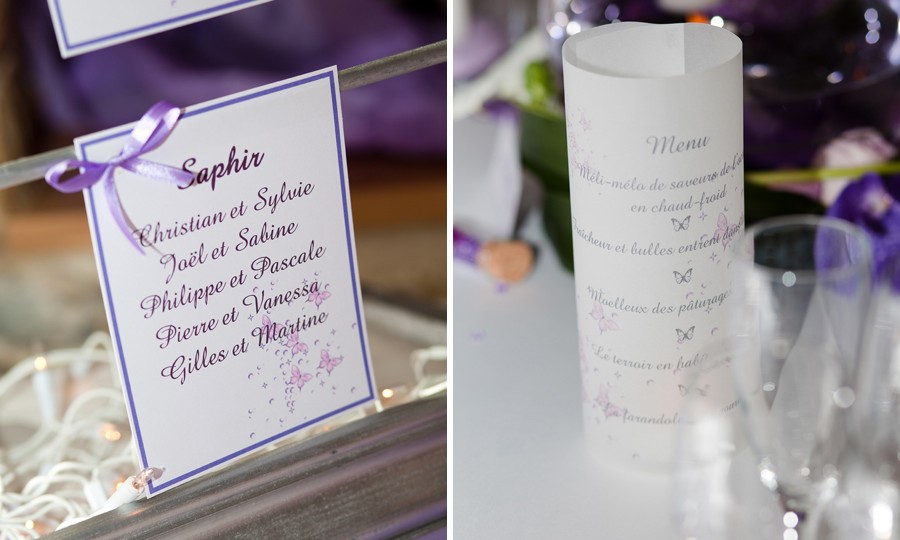 Saphir
Christian et Sylvie
Joël et Sabine
Philippe et Pascale
Pierre et Vanessa
Gilles et Martine
Menu
Méli-mélo de saveurs de
en chaud-froid
et bulles entrent
Moelleux des pâturages
Le terroir en